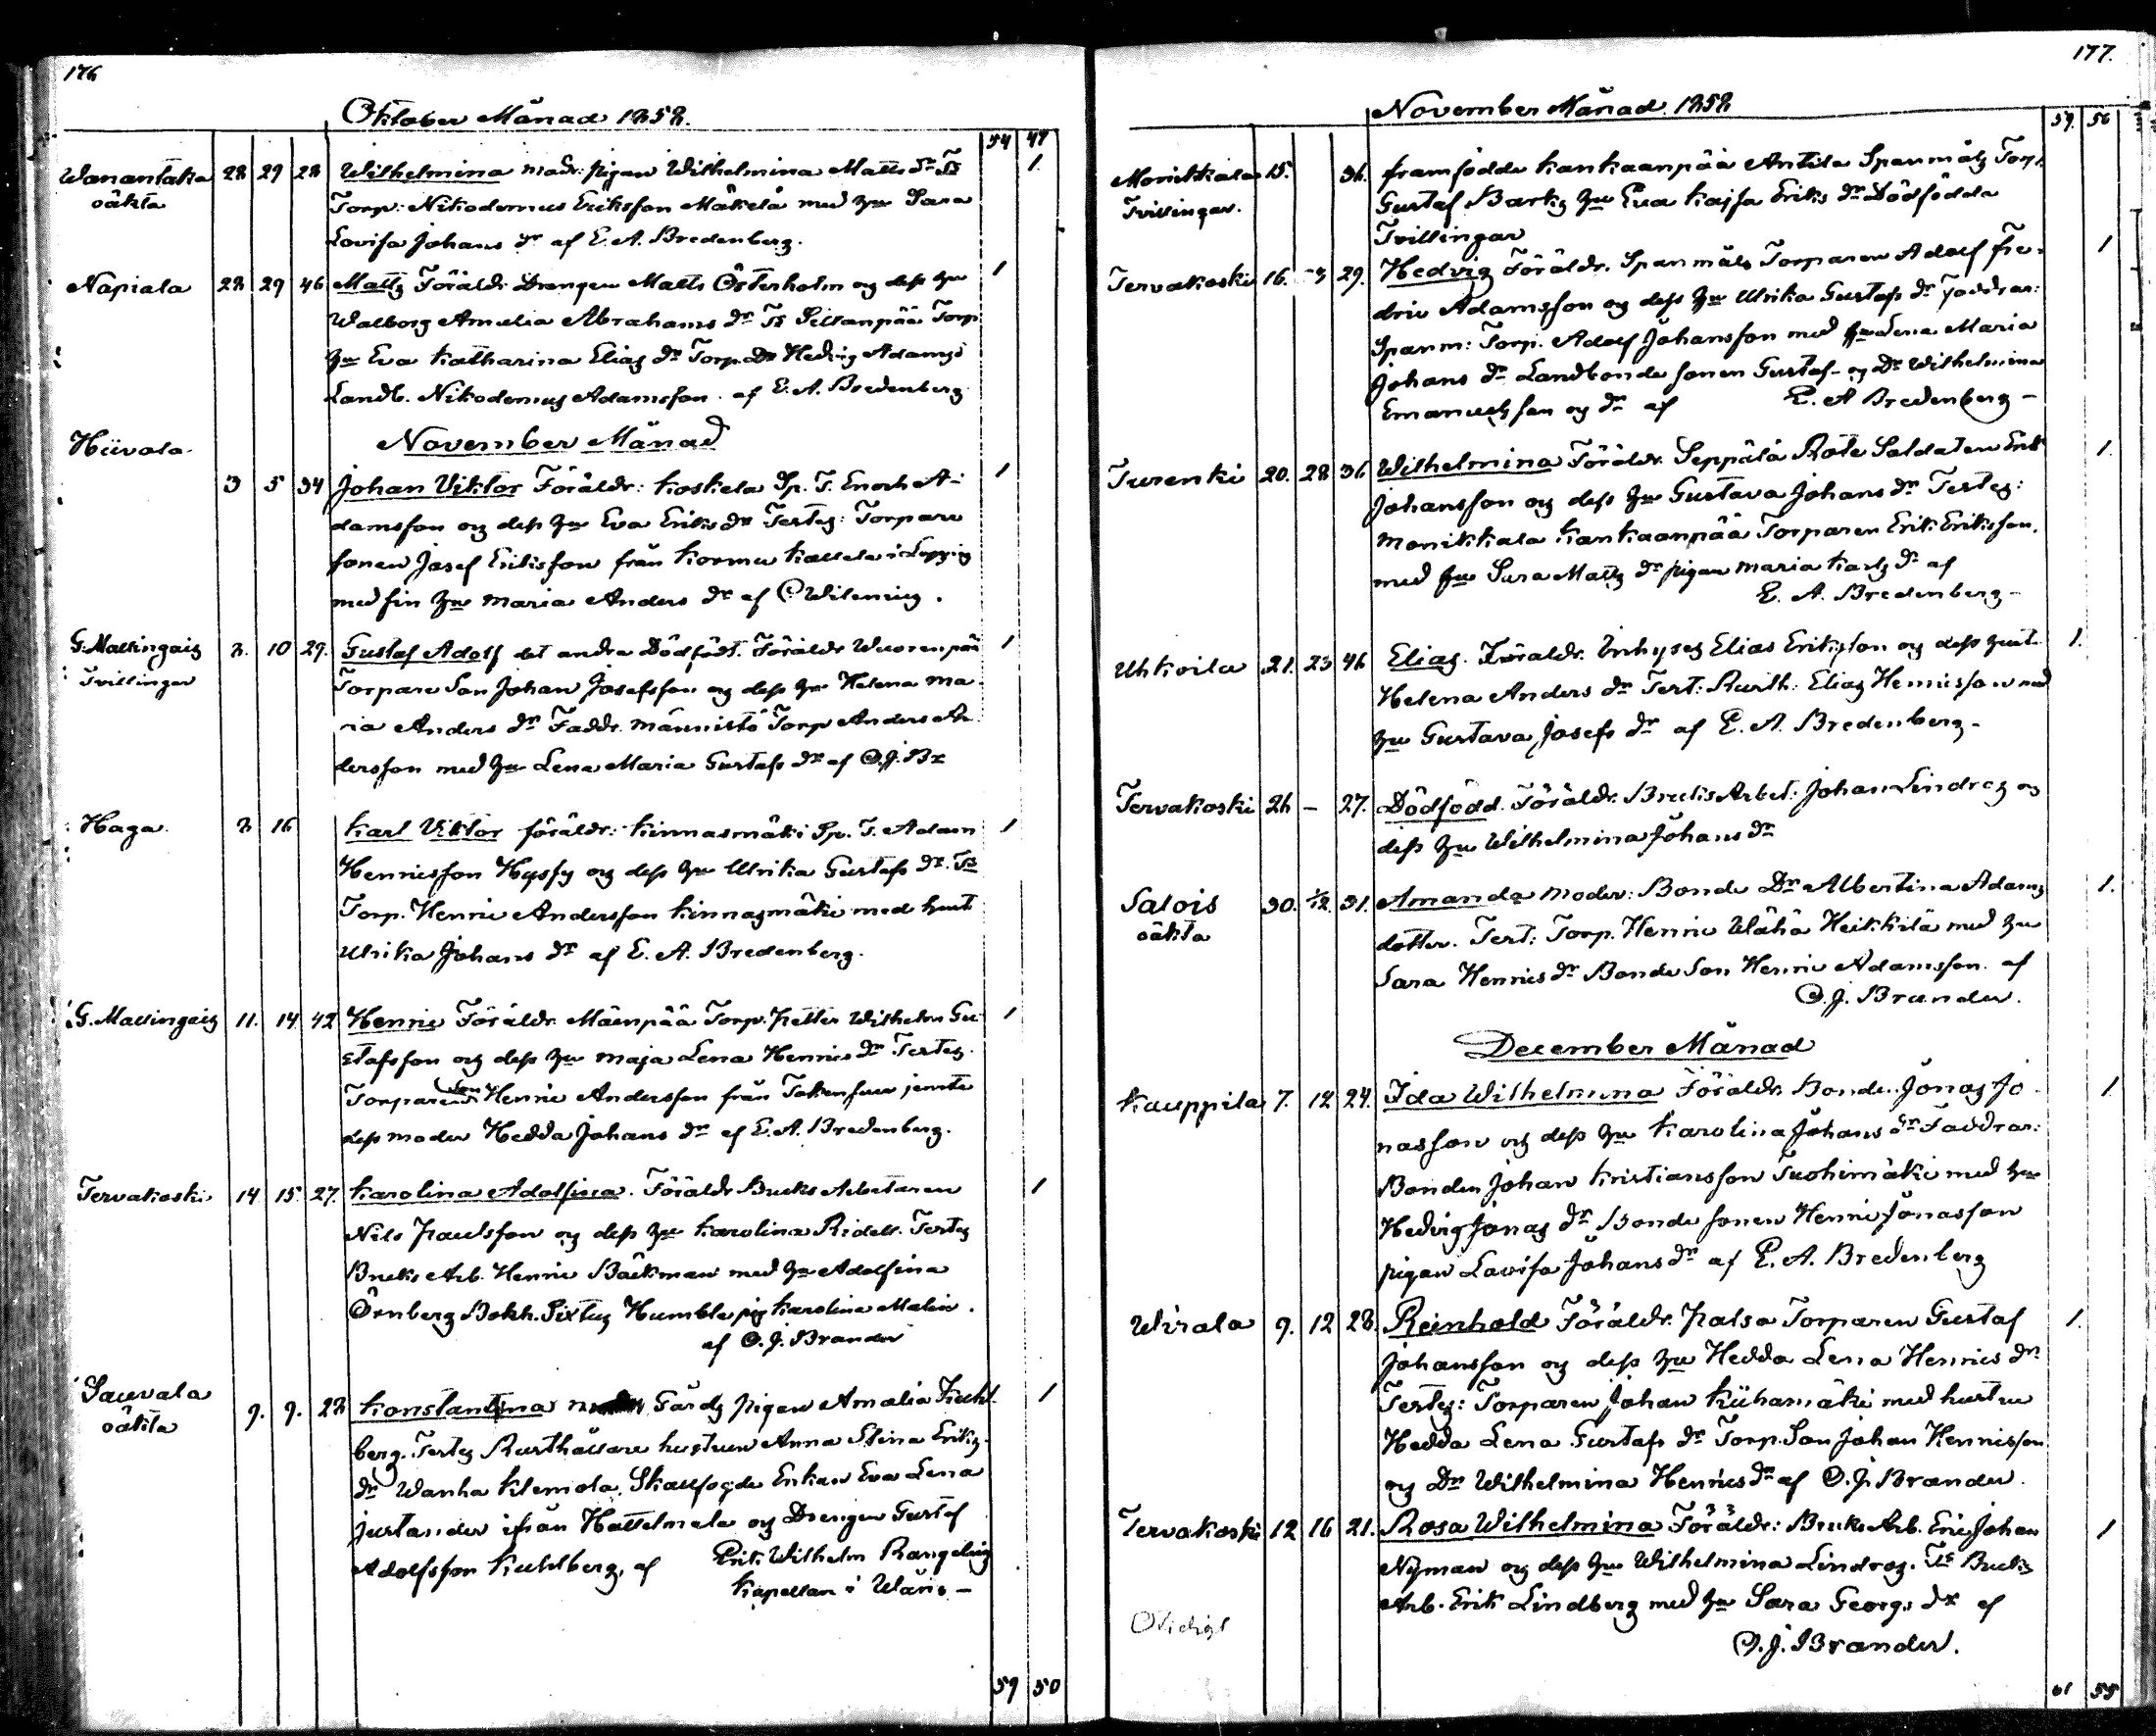 176
Oktober Månad 1858.
54 47
Wanantaka 28 29 28 Wilhelmina modr: pigan Wilhelmina Matts dr Ts 1.
oäkta Torp: Nikodemus Eriksson Mäkelä med hu Sara
Lovisa Johans dr af E. A. Bredenberg.
Napiala 28 29 46 Matts Föräldr. Drengen Matts Österholm og dess hu 1
Walborg Amalia Abrahams dr Ts Sillanpää Torp
hu Eva Katharina Elias dr Torp. Dr Hedvig Adams
Landb. Nikodemus Adamsson. af E. A. Bredenberg
November Månad
Hiivola
3 5 34 Johan Viktor Föräldr: Koskela Sp. T. Enoch A- 1
damsson og dess hu Eva Eriks dr Testes: Torpare
sonen Josef Eriksson från Kormu Kallela i Loppis
med sin hu Maria Anders dr af
G. Mallingais 8. 10 29. Gustaf Adolf det andra Dödfödt. Föräldr Wuorenpää 1
Tvillingar Torpare Son Johan Josefsson og dess hu Helena Ma-
ria Anders dr Faddr. Männistö Torp Anders An-
dersson med hu Lena Maria Gustafs dr af O. J. Br
Haga 8 16 Karl Viktor föräldr: Kinnasmäki Sp. T. Adam 1
Henricsson Hyssy og dess hu Ulrika Gustafs dr. Ts
Torp. Henric Andersson Kinnasmäki med hust
Ulrika Johans dr af E. A. Bredenberg.
G. Mallingais 11. 14 42 Henric Föräldr. Mäenpää Torp. Petter Wilhelm Gu- 1
stafsson og dess hu Maja Lena Henrics dr Testes.
Torparen Son Henric Andersson från jemte
dess moder Hedda Johans dr af E. A. Bredenberg.
Tervakoski 14. 15. 27. Karolina Adolfina. Föräldr Bruks Arbetaren 1
Nils Paulsson og dess hu Karolina Ridell. Testes
Bruks Arb. Henric Bäckman med hu Adolfina
Örnberg Bokh. Sixtus Humble pig Karolina Malin.
af O. J. Brander
Sauvala 9. 9. 28 Konstantina Gårds pigan Amalia Kuhl- 1
oäkta berg. Testes Rusthållare hustrun Anna Stina Eriks-
dr Wanha Klemola, Skallfogde Enkan Eva Lena
Justander ifrån Hattelmala og Drengen Gustaf
Adolfsson Kuhlberg, af Erik Wilhelm Rangelius
Kapellan i Wånå –
59 50
177.
November Månad 1858
59. 56
Monikkala 15. 36. framfödda Kankaanpää Antila Spanmåls Torp.
Tvillingar. Gustaf Barks hu Eva Kajsa Eriks dr Dödfödda
Tvillingar
Tervakoski 16. 29. Hedvig Föräldr. Spanmåls Torparen Adolf Fre- 1
dric Adamsson og dess hu Ulrika Gustafs dr Faddrar:
Spanm: Torp. Adolf Johansson med hu Lena Maria
Johans dr Landbonde sonen Gustaf- og Dr Wilhelmina
Emanuels son og dr af E. A Bredenberg –
Turenki 20. 28 36 Wilhelmina Föräldr. Seppälä Rote Soldaten Erik 1.
Johansson og dess hu Gustava Johans dr Testes:
Monikkala Kankaanpää Torparen Erik Eriksson.
med hu Sara Matts dr pigan Maria Karls dr af
E. A. Bredenberg –
Uhkoila 21. 23 46 Elias. Föräldr. Inhyses Elias Eriksson og dess hust. 1.
Helena Anders dr Test: Rusth: Elias Henricsson med
hu Gustava Josefs dr af E. A. Bredenberg –
Tervakoski 26 – 27. Dödfödd. Föräldr. Bruks Arbet: Johan Lindroz og
dess hu Wilhelmina Johans dr
Salois 30. 1/12. 31. Amanda Moder: Bonde Dr Albertina Adams 1.
oäkta dotter. Test: Torp. Henric Wähä Heikkilä med hu
Sara Henrics dr Bonde Son Henric Adamsson. af
O. J. Brander.
December Månad
Kauppila 7. 12 24. Ida Wilhelmina Föräldr. Bonden Jonas Jo- 1
nasson og dess hu Karolina Johans dr Faddrar:
Bonden Johan Kristiansson Tuohimäki med hu
Hedvig Jonas dr Bonde sonen Henric Jonasson
pigan Lovisa Johans dr af E. A. Bredenberg
Wirala 9. 12 28. Reinhold Föräldr. Palsa Torparen Gustaf 1.
Johansson og dess hu Hedda Lena Henrics dr
Testes: Torparen Johan Kiihamäki med hustru
Hedda Lena Gustafs dr Torp. Son Johan Henricsson
og Dr Wilhelmina Henrics dr af O. J. Brander.
Tervakoski 12 16 21. Rosa Wilhelmina Föräldr: Bruks Arb. Eric Johan 1
Nyman og dess hu Wilhelmina Lindroz. Ts Bruks
Arb. Erik Lindberg med hu Sara Georgs dr af
O. J. Brander.
61 55